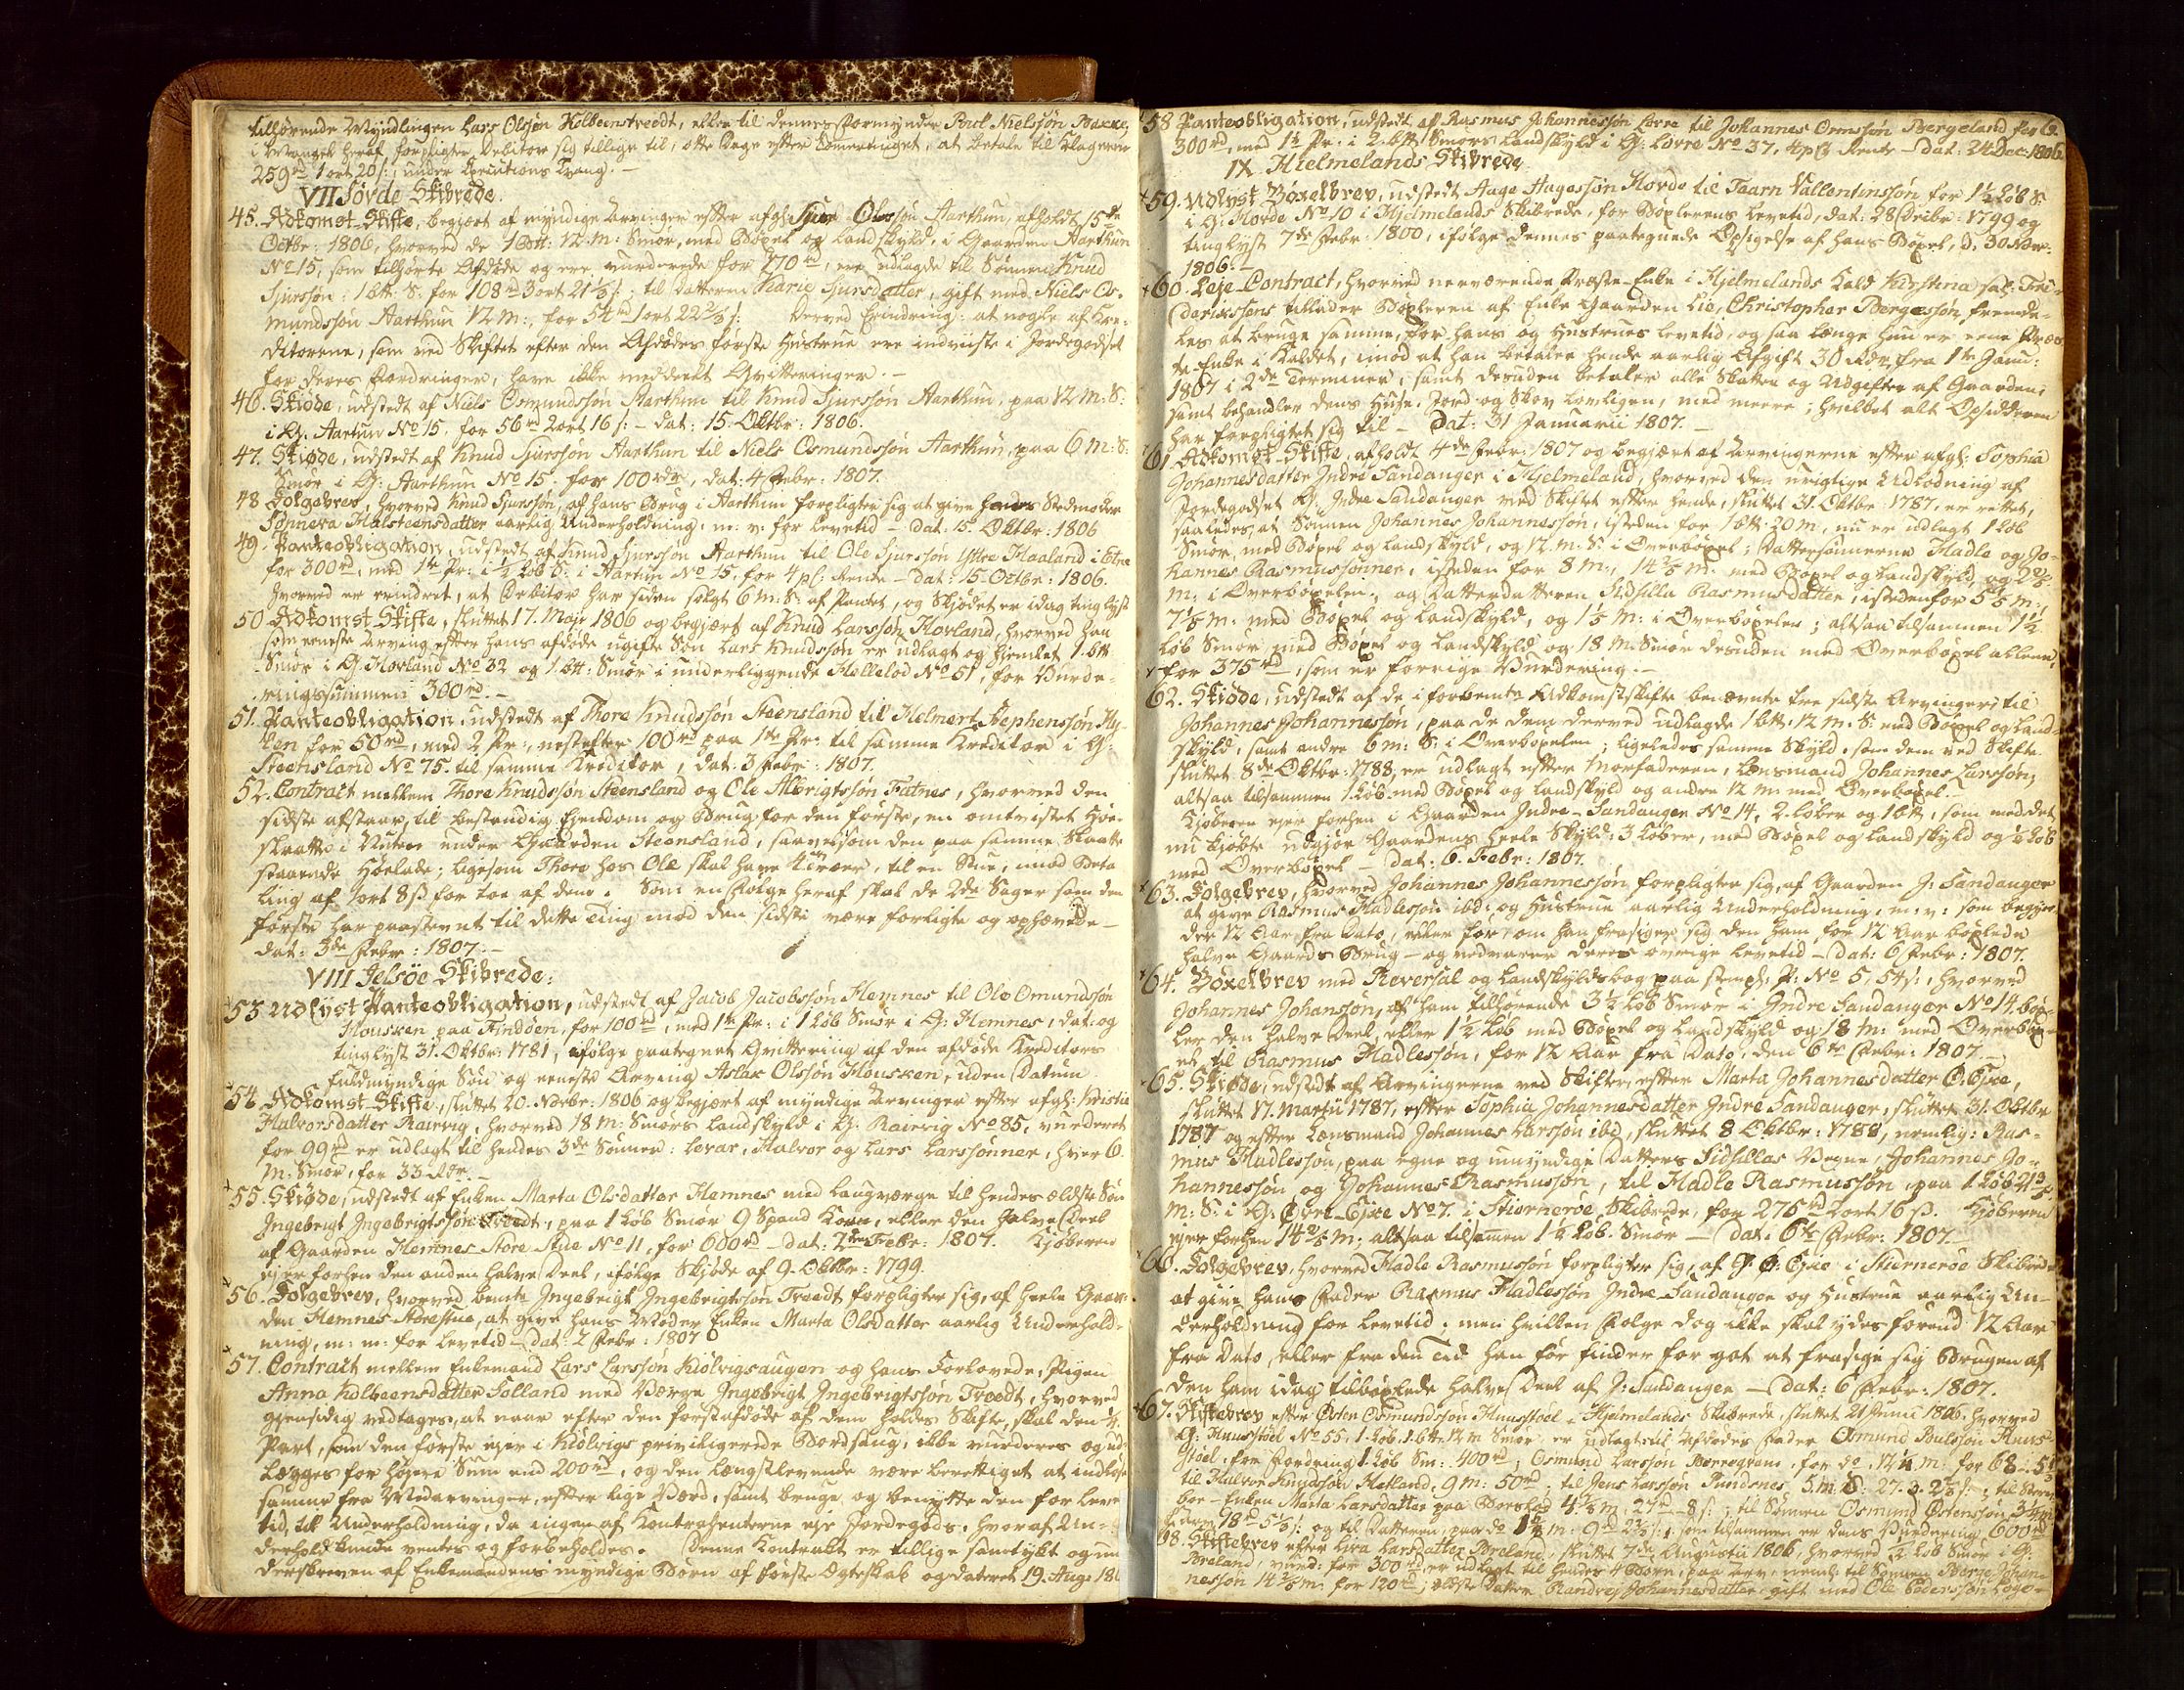 tilhørende Myndlingen Lars Olsøn Kolbeenstvedt, eller til dennes Formynder Poul Nielsøn Bakke,
i Mangel heraf forpligter Debitor sig tillige til, otte Dage efter Sommertinget, at betale til Klageren
259 rd 1 ort 20 s:, under Executions Tvang. –
VII Søvde Skibrede.
45. Adkomst-Skifte, begjært af myndige Arvinger efter afg: Sjur Olsøn Aarthun, afholdt 15de
Octbr: 1806, hvorved de 1 Bpd: 12 m: Smør, med Bøxel og Landskyld, i Gaarden Aarthun
No 15, som tilhørte Afdøde og ere vurderede for 270 rd, ere udlagde til Sønnen Knud
Sjursøn: 1 btt. S. for 108 rd 3 ort 21⅓ s; til Datteren Karie Sjursdatter, gift med Niels Os-
mundssøn Aarthun 12 m:, for 54 rd 1 ort 22⅔ s: Derved Erindring: at nogle af Kre-
ditorene, som ved Skiftet efter den Afdødes første Hustrue ere indviiste i Jordegodset
for deres Fordringer, have ikke meddeelt Qvitteringer. –
46. Skiøde, udstedt af Niels Osmundssøn Aarthun til Knud Sjursøn Aarthun, paa 12 m: S:
i G. Aartun No 15. for 56 rd 2 ort 16 s: – dat: 15. Oktbr: 1806.
47. Skiøde, udstedt af Knud Sjursøn Aarthun til Niels Osmundssøn Aarthun, paa 6 m: S:
Smør i G: Aarthun No 15. for 100 rdr, dat: 4 Febr: 1807.
48 Folgebrev, hvorved Knud Sjursøn, af hans Brug i Aarthun forpligter sig at give hands Stedmoder
Sønneva Halsteensdatter aarlig Underholdning. m: v: for Levetid – dat: 15. Oktbr: 1806
49. Panteobligation, udstedt af Knud Sjursøn Aarthun til Ole Sjursøn Yttre Haaland i Etne
for 300 rd, med 1te Pr: i ½ Løb S: i Aartun No 15. for 4 pC: Rente – dat: 15 Octbr: 1806.
hvorved er erindret, at Debitor har siden solgt 6 m: S: af Pantet, og Skjødet er idag tinglyst
50. Adkomst-Skifte, sluttet 17. Maji 1806 og begjært af Knud Larssøn Hovland, hvorved han
som eneste Arving efter hans afdøde ugifte Søn Lars Knudssøn er udlagt og hjemlet 1 btt
Smør i G. Hovland No 32 og 1 btt: Smør i underliggende Hellelod No 51, for Vurde-
ringssummen 300 rd. –
51. Panteobligation, udstedt af Thore Knudssøn Steensland til Helmert Stephenssøn Hy-
len for 50 rd, med 2 Pr:, nestefter 100 rd paa 1te Pr: til samme Kreditor i G:
Steensland No 75. til samme Kreditor, dat: 3 Febr: 1807.
52. Contract mellem Thore Knudssøn Steensland og Ole Albrigtssøn Fatnes, hvorved den
sidste afstaar, til bestandig Ejendom og Brug for den første, en omtvistet Høe-
slaatte i Nuten under Gaarden Steensland, saavelsom den paa samme Slaatte
staaende Høelade; ligesom Thore hos Ole skal have Træer, til en Stue, imod Beta
ling af 1 ort 8 s for toe af dem. Som en Følge heraf skal de 2de Sager som den
første har paastevnt til dette Ting mod den sidste være forligte og ophævede –
dat: 3de Febr: 1807. –
VIII Jelsøe Skibrede:
53 Udlyst Panteobligation, udstedt af Jacob Jacobssøn Hemnes til Ole Omundsøn
Housken paa Findøen, for 100 rd, med 1te Pr: i 1 Løb Smør i G: Hemnes, dat: og
tinglyst 31. Oktbr: 1781, ifølge paategnet Qvittering af den afdøde Kreditors
fuldmyndige Søn og eeneste Arving Aslak Olsøn Housken, uden Datum
54. Adkomst-Skifte, sluttet 20. Novbr: 1806 og begjært af myndige Arvinger efter afg: Kristie
Halvorsdatter Ravnvig, hvorved 18 m: Smørs Landskyld i G. Ravnvig No 85, vurderet
for 99 rd er udlagt til hendes 3de Sønner: Lovar, Halvor og Lars Larssønner, hver 6
m: Smør, for 33 Rdr. –
55. Skiøde, udstedt af Enken Marta Olsdatter Hemnes med Laugværge til hendes ældste Søn
Ingebrigt Ingebrigtssøn Tveedt, paa 1 Løb Smør 9 Spand Korn, eller den halve Deel
af Gaarden Hemnes Store Stue No 11, for 600 rd – dat: 2den Febr: 1807. Kjøberen
ejer forhen den anden halve Deel, ifølge Skjøde af 9. Oktbr: 1799.
56. Folgebrev, hvorved bemte Ingebrigt Ingebrigtssøn Tveedt forpligter sig, af heele Gaar-
den Hemnes Storestue, at give hans Moder Enken Marta Olsdatter aarlig Underhold-
ning, m: m: for Levetid – dat: 2 Febr: 1807
57. Contract mellem Enkemand Lars Larssøn Kiølvigsaugen og hans Forlovede, Pigen
Anna Kolbeensdatter Solland med Værge Ingebrigt Ingebrigtssøn Tveedt, hvorved
gjensidig vedtages, at naar efter den førstafdøde af dem holdes Skifte, skal den
Part, som den første ejer i Kiølvigs privilegerede Bordsaug, ikke vurderes og ud-
lægges for højere Sum end 200 rd, og den længstlevende være berettiget at indløse
samme fra Medarvinger, efter lige Værd, samt bruge og benytte den for Leve
tid, til Underholdning, da ingen af Kontrahenterne eje Jordegods, hvoraf Un-
derhold kunde ventes og forbeholdes. Denne Kontrakt er tillige samtykt og un
derskreven af Enkemandens myndige Børn af første Ægteskab og dateret 19. Aug: 180
58 Panteobligation, udstedt af Rasmus Johannessøn Lovre til Johannes Ormssøn Bergeland for
300 rd, med 1te Pr: i 2 btt: Smørs Landskyld i G: Lovre No 37, 4 pC Rente – dat: 24 Dec: 1806
IX. Hielmelands Skibrede
59. Udlyst Bøxelbrev, udstedt Aage Aagessøn Hovde til Taarn Vallentinssøn for 1½ Løb S:
i G: Hovde No 10 i Hjelmelands Skibrede, for Bøxlerens Levetid, dat: 28 Octbr: 1799 og
tinglyst 7de Febr: 1800, ifølge dennes paategnede Opsigelse af hans Bøxel, d. 30 Nov.
1806. –
60. Leje-Contract, hvorved nærværende Præste-Enke i Hjelmelands Kald Kirstina sal: Fri-
derikssøns tillader Bøxleren af Enke Gaarden Lie, Christopher Bergessøn fremde-
les at bruge samme, for hans og Hustrues Levetid, og saa længe hun er eene Præs-
te-Enke i Kaldet, imod at han betaler hende aarlig Afgift 30 Rdr, fra 1te Janu:
1807 i 2de Terminer, samt desuden betaler alle Skatter og Udgifter af Gaarden,
samt behandler dens Huse, Jord og Skov lovligen, med meere; hvilket alt Opsidderen
har forpligtet sig til – Dat: 31 Januarii 1807. –
61. Adkomst-Skifte, afholdt 4de Febr: 1807 og begjært af Arvingerne efter afg: Sophia
Johannesdatter Indre Sandanger i Hjelmeland, hvorved den urigtige Udlodning af
Jordegodset G. Indre Sandanger ved Skiftet efter hende, sluttet 31. Oktbr: 1787, er rettet,
saaledes, at Sønnen Johannes Johannessøn, isteden for 1 btt: 20 m, nu er udlagt 1 Løb
Smør, med Bøxel og Landskyld, og 12 m. S: i Overbøxel; Dattersønnerne Hadle og Jo-
hannes Rasmussønner, isteden for 8 m:, 14⅖ m: med Bøxel og Landskyld, og 2⅖
m: i Overbøxelen; og Datterdatteren Sidsilla Rasmusdatter, istedenfor 5⅓ m:,
7⅕ m: med Bøxel og Landskyld, og 1⅕ m: i Overbøxelen; altsaa tilsammen 1½
Løb Smør med Bøxel og Landskyld og 18 m: Smør desuden med Overbøxel allene
for 375 rd, som er forrige Vurdering. –
62. Skiøde, udstedt af de i forbemte Adkomstskifte benævnte tre sidste Arvinger, til
Johannes Johannessøn, paa de dem derved udlagde 1 btt: 12 m. S: med Bøxel og Land-
skyld, samt andre 6 m: S: i Overbøxelen; ligeledes samme Skyld, som dem ved Skifte
sluttet 8de Oktbr: 1788, er udlagt efter Morfaderen, Lensmand Johannes Larssøn;
altsaa tilsammen 1 Løb med Bøxel og Landskyld og andre 12 m: med Overbøxel. –
Kjøberen ejer forhen i Gaarden Indre-Sandanger No 14, 2 Løber og 1 btt, som med det
nu kjøbte udgjør Gaardens heele Skyld: 3 Løber, med Bøxel og Landskyld og ½ Løb
med Overbøxel – Dat: 6. Febr: 1807.
63. Folgebrev, hvorved Johannes Johannessøn forpligter sig, af Gaarden J. Sandanger
at give Rasmus Hadlessøn ibd: og Hustrue aarlig Underholdning, m: v: som begyn-
der 12 Aar fra Dato, eller før, om han frasiger sig den ham for 12 Aar bøxlede
halve Gaards Brug – og vedvarer deres øvrige Levetid – Dat: 6 Febr: 1807.
64. Bøxelbrev med Reversal og Landskyldsbog paa stempl: P: No 5, 54 s:, hvorved
Johannes Johanssøn, af ham tilhørende 3½ Løb Smør i Indre Sandanger No 14. bøx-
ler den halve Deel, eller 1½ Løb med Bøxel og Landskyld og 18 m: med Overbøx-
el til Rasmus Hadlessøn, for 12 Aar fra Dato, den 6te Febr: 1807. –
65. Skiøde, udstedt af Arvingerne ved Skifter, efter Marta Johannesdatter Ø. Ejke,
sluttet 17. Martii 1787, efter Sophia Johannesdatter Indre Sandanger, sluttet 31. Oktbr
1787 og efter Lensmand Johannes Larssøn ibd, sluttet 8 Oktbr: 1788, nemlig: Ras-
mus Hadlessøn, paa egne og umyndige Datters Sidsillas Vegne, Johannes Jo-
hannessøn og Johannes Rasmussøn, til Hadle Rasmussøn, paa 1 Løb 21⅗
m: S: i G: Øvre Ejke No 7. i Stiernerøe Skibrede, for 275 rd 2 ort 16 s. Kjøberen
ejer forhen 14⅖ m: altsaa tilsammen 1½ Løb. Smør – Dat: 6te Febr: 1807. –
66. Folgebrev, hvorved Hadle Rasmussøn forpligter sig, af G. Ø. Ejke i Stiernerøe Skibrede
at give hans Fader Rasmus Hadlessøn Indre Sandanger og Hustrue aarlig Un-
derholdning for Levetid; men hvilken Folge dog ikke skal ydes forend 12 Aar
fra Dato, eller fra den Tid han før finder for got at frasige sig Brugen af
den ham idag tilbøxlede halve Deel af J: Sandanger – Dat: 6 Febr: 1807.
67. Skiftebrev efter Østen Osmundssøn Hunsstøel i Hjelmelands Skibrede, sluttet 21 Junii 1806. hvorved
G: Hunsstøel No 55, 1 Løb. 1 btt. 12 m Smør er udlagt til Afdødes Fader Osmund Poulssøn Huns-
støel, for Fordring 1 Løb Sm: 400 rd; Osmund Larssøn Berregtun, for do. 12¼ m: for 68
til Halvor Knudssøn Hetland, 9 m: 50 rd; til Jens Larssøn Fundsnes 5 m: S: 27. 3. 2⅔ s:;
boe-Enken Marta Larsdatter paa Boeslod 4⅞ m: 27 rd 8 s; til Sønnen Osmund Østenssøn 3¼ m
18 rd 5⅓ s: og til Datteren, paa do 1⅝ m: 9 rd 2⅔ s:, som tilsammen er dens Vurdering 600 rd
68. Skiftebrev efter Siva Larsdatter Breland, sluttet 7de Augustii 1806, hvorved ½ Løb Smør i G:
Breland, vurd: for 300 rd, er udlagt til hendes 4 Børn, paa Arv, nemlig til Sønnen Børge Johan-
nessøn 14⅖ m: for 120 rd; ældste Datter Randvej Johannesdatter, gift med Ole Pederssøn